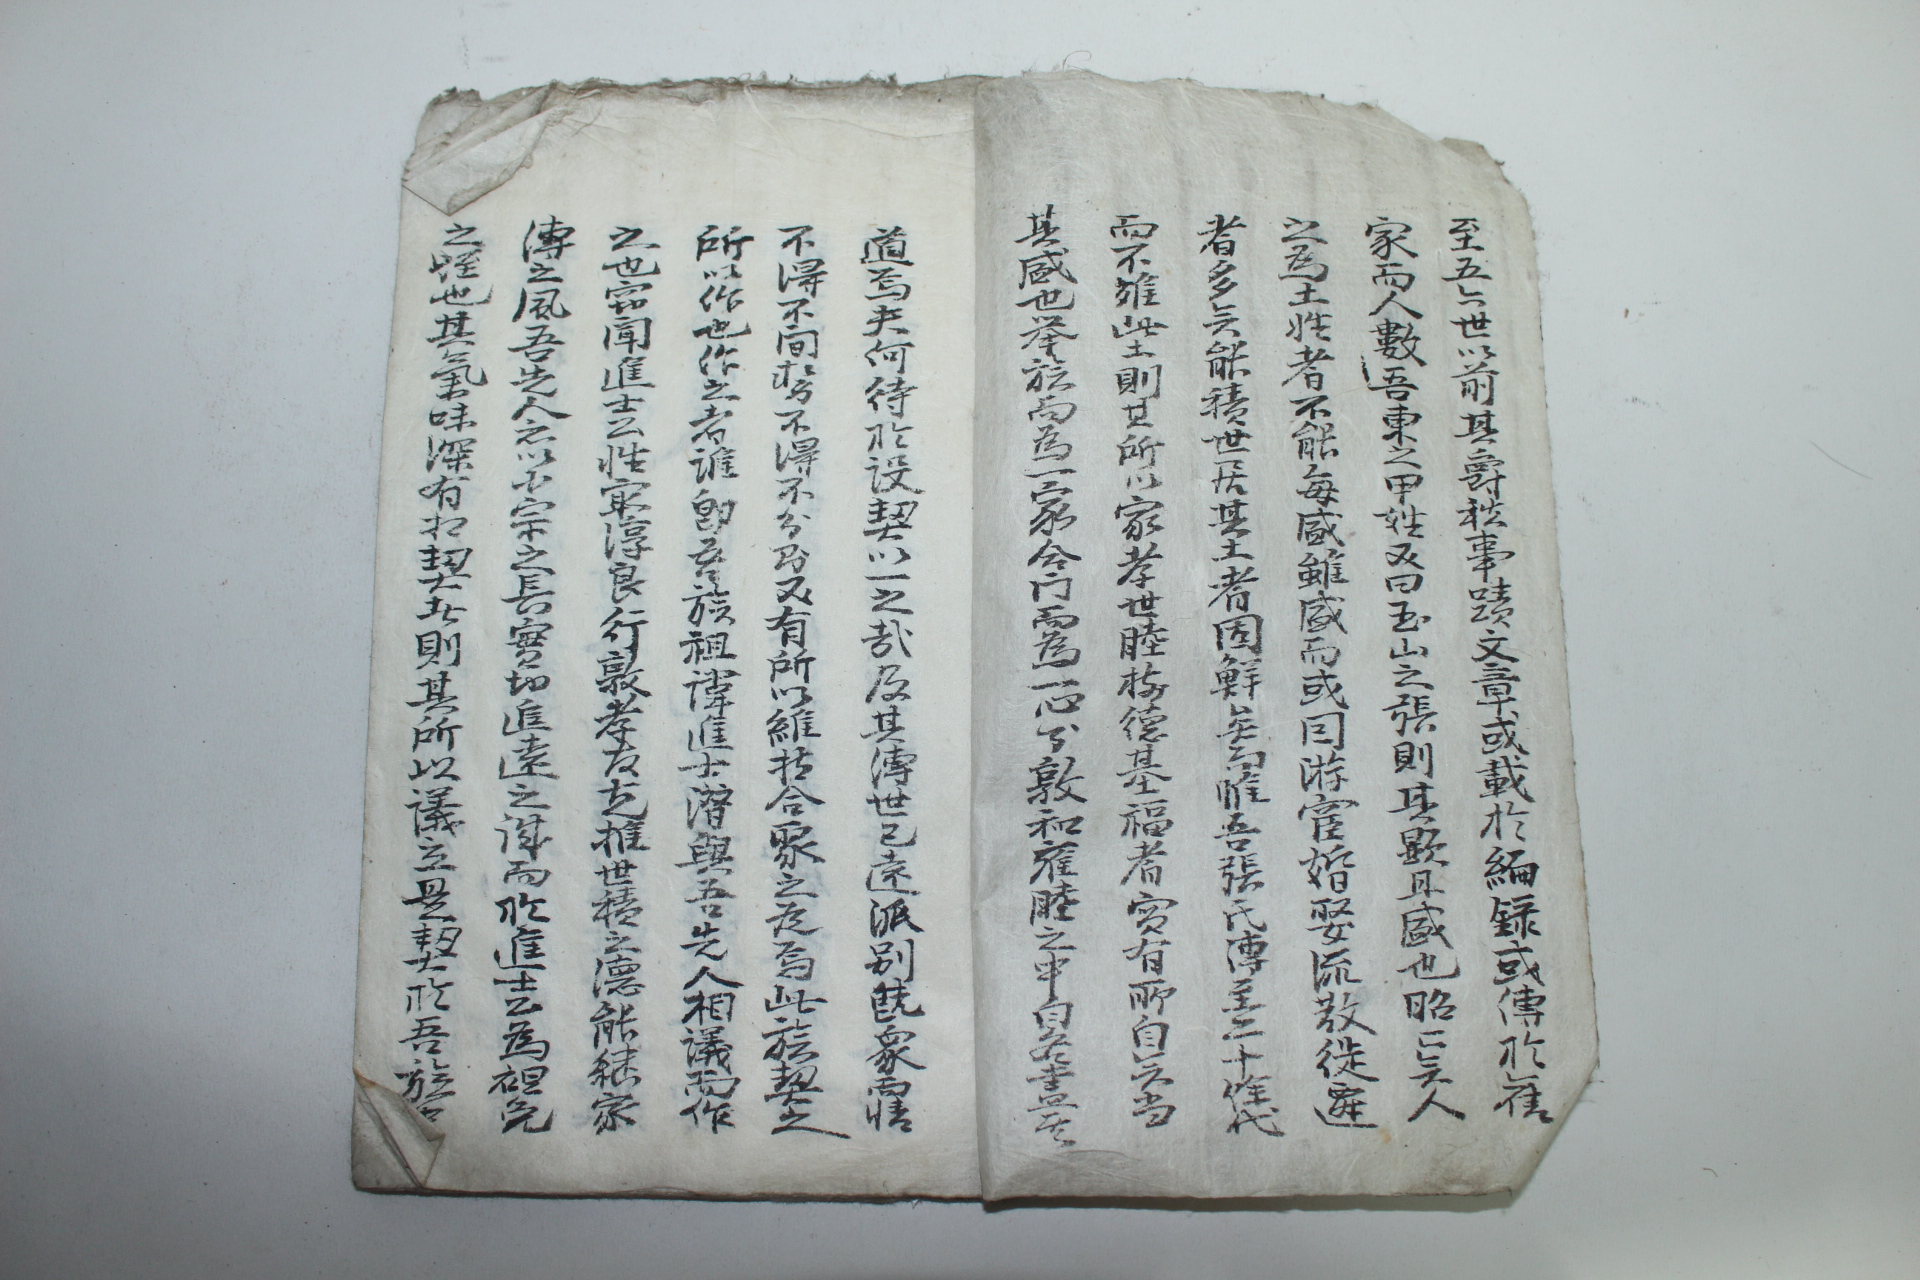 至五六世以前其爵秩事蹟文章或載於編録或傳於舊
家而人數吾東之甲姓又曰玉山之張則其顯且盛也昭昭矣人
之爲土姓者不能每盛雖盛而或因游宦婚娶流散徙遷
者多矣能積世居其土者固鮮矣而惟吾張氏傳至二十餘代
而不離此土則其所以家孝世睦樹德基福者實有所自矣當
其盛也擧族而爲一家合門而爲一心敦和雍睦之中自各盡其
道焉夫何待於設契以一之哉及其傳世已遠派別旣衆而情
不得不間勢不得不分則又有所以維持合聚之爲焉此族契之
所以作也作之者誰卽吾族祖諱進士潛與吾先人相議而作
之也窃聞進士公性寔淳良行敦孝友克推世積之德能繼家
傳之風吾先人亦以小宗之長實切追遠之誠而於進士公爲袒免
之姪也其氣味深有相契者則其所以議立是契於吾族者